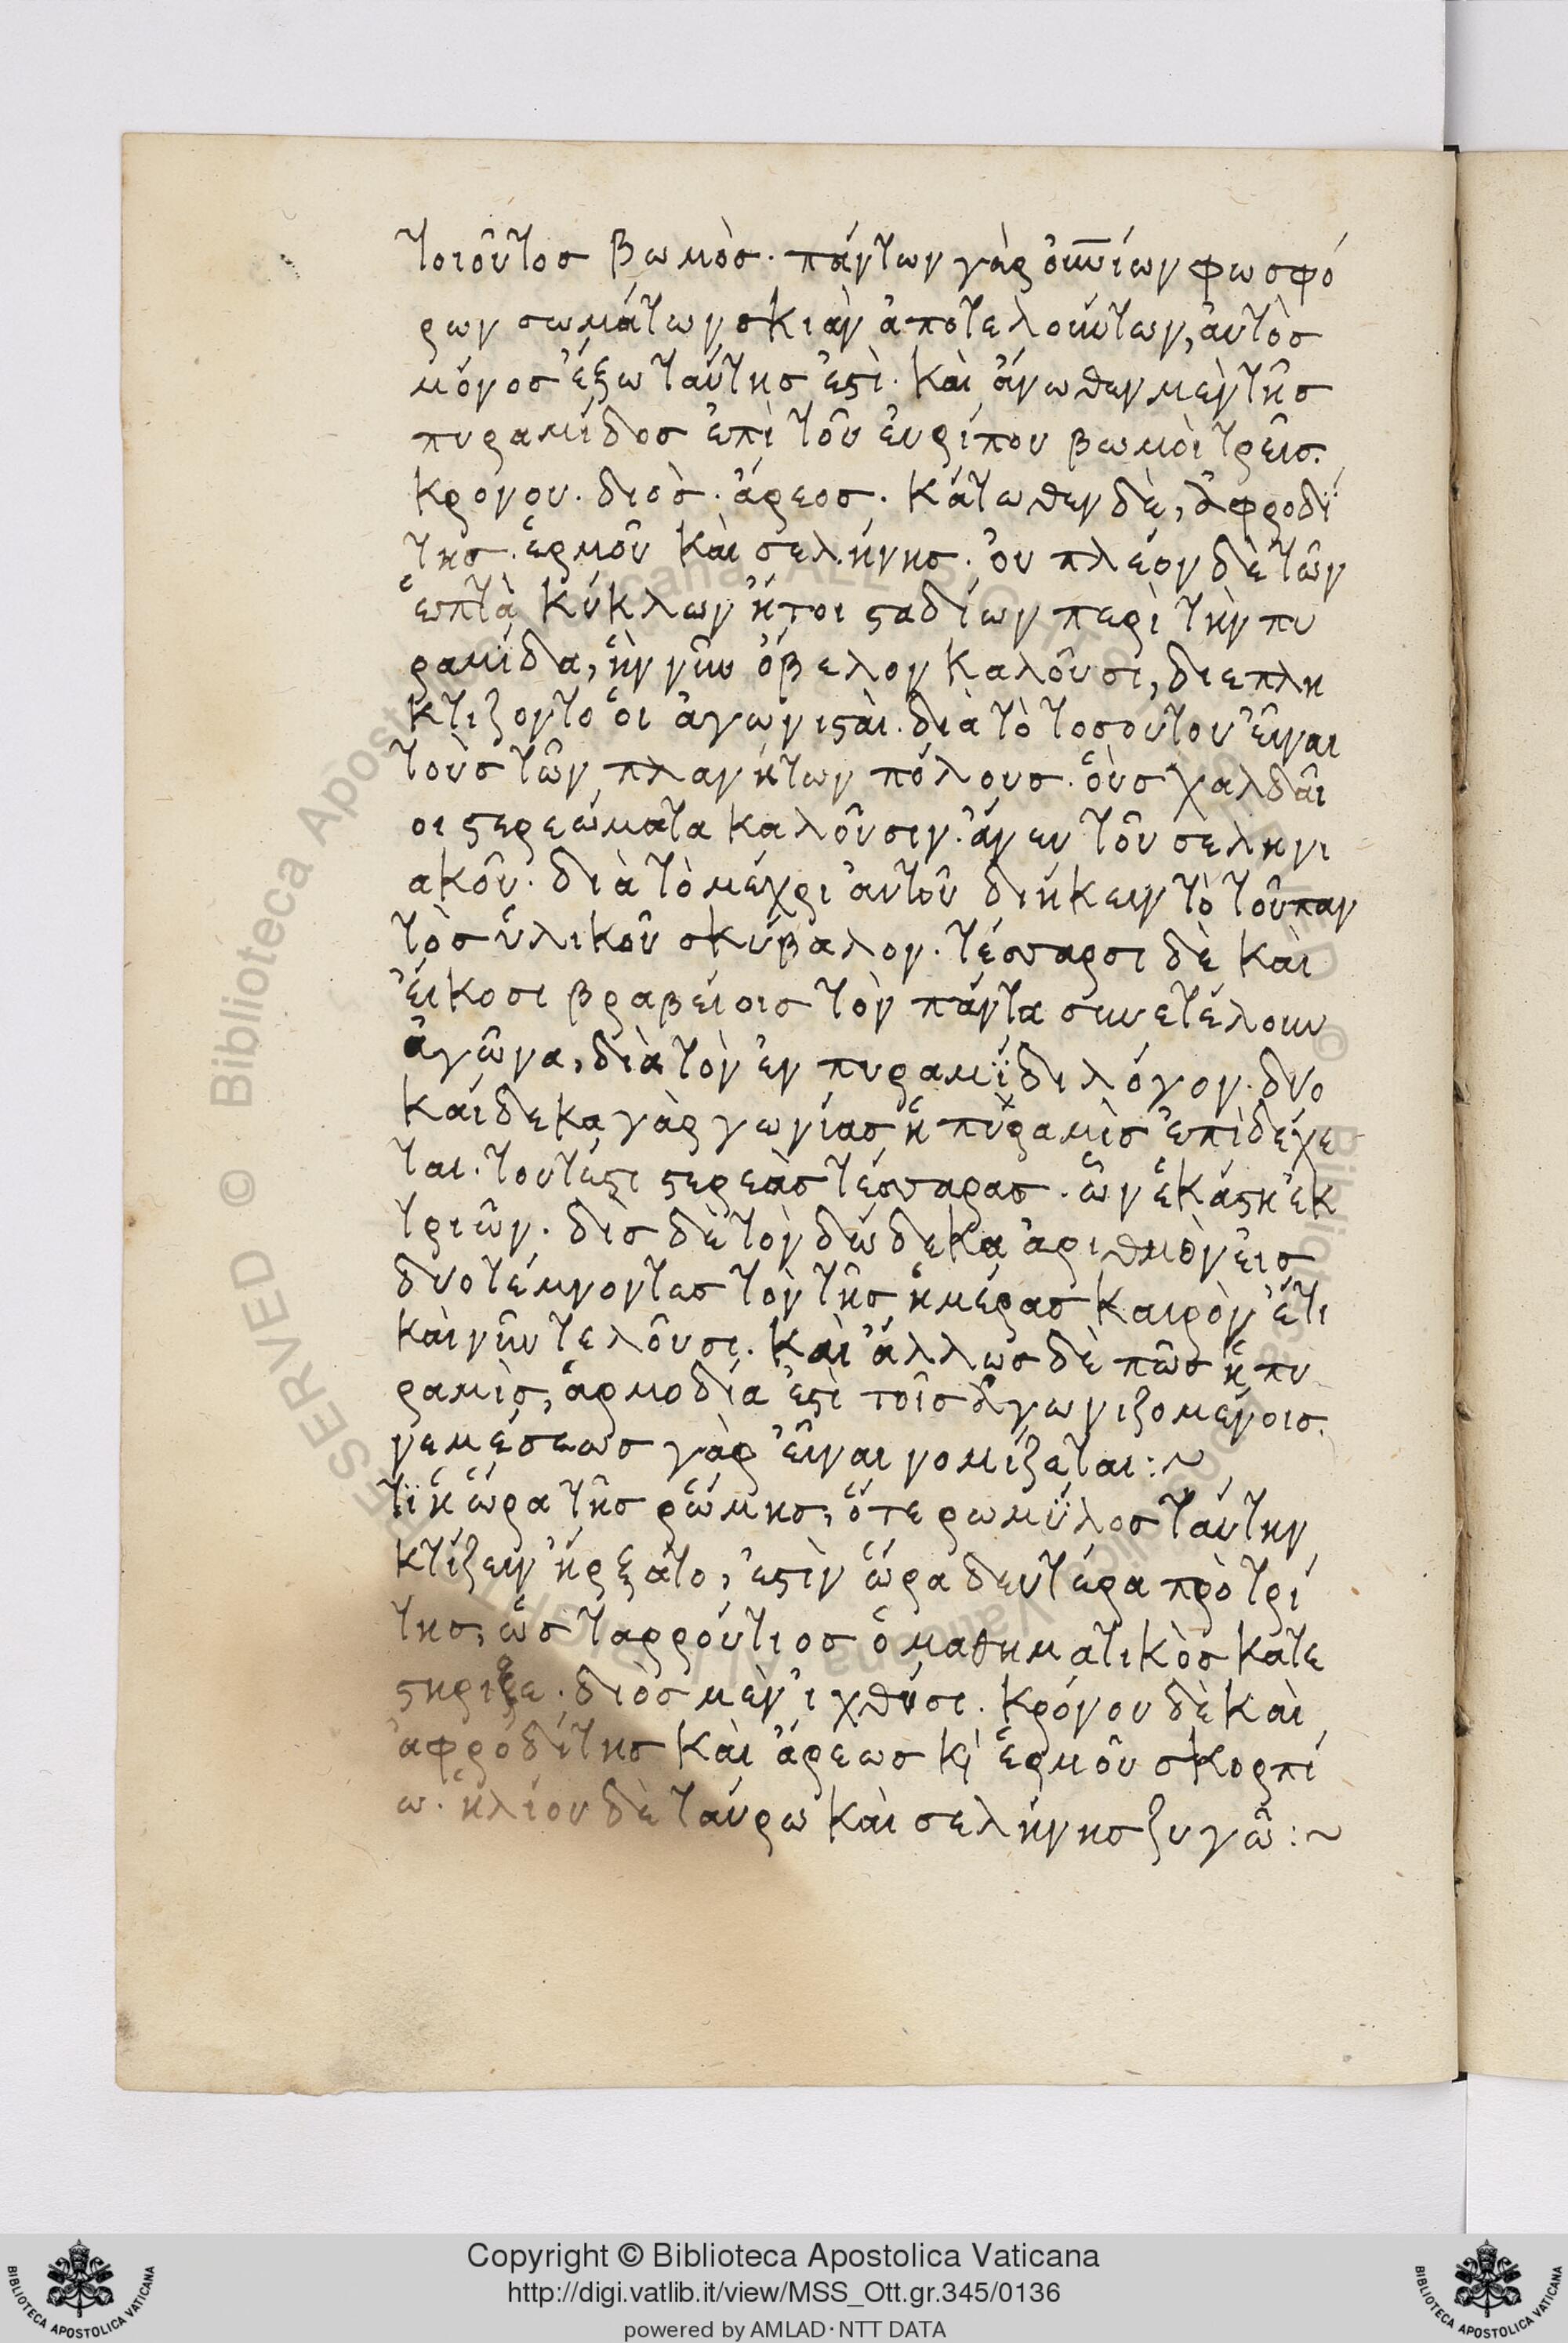 τοιοῦτοσ βωμὸσ· πάντων γὰρ ὁμοίων φωσφό
ρων σωμάτων σκιὰν ἀποτελούντων, ἀυτὸσ
μόνοσ ἔξω ταύτησ ἐϛὶ· κὰι ἄνωθεν μὲν τῆσ
πυραμίδοσ ἐπὶ τοῦ ἐυρίπου βωμὸι τρεῖσ.
κρονου· διοσ̀· ἄρεοσ· κάτωθεν δὲ, ἀφροδί
τησ· ἑρμοῦ κὰι σελήνησ· ὀυ πλέον δὲ τῶν
ἑπτὰ κύκλων ἤτοι ϛαδίων περὶ τὴν πυ
ραμίδα, ἣν νῦν ὄβελον καλοῦσι, διεπλη
κτίζοντο ὁι ἀγωνιϛὰι· διὰ τὸ τοσούτου εἶναι
τοὺσ τῶν πλανήτων πόλουσ· ὃυσ χαλδᾶι
οι ϛερεώματα καλοῦσιν· ἄνευ τοῦ σεληνι
ακοῦ· διὰ τὸ μέχρι ἀυτοῦ διήκειν τὸ τοῦ παν
τὸσ ὑλικοῦ σκύβαλον· τέσσαρσι δὲ κὰι
ἔικοσι βραβείοισ τὸν πάντα συνετέλουν
ἀγῶνα, διὰ τὸν ἐν πυραμΐδι λόγον· δυο
κάιδεκα γὰρ γωνίασ ἡ πυραμὶσ ἐπιδέχε
ται· τουτέϛι ϛερεὰσ τέσσαρασ· ὧν ἑκάϛη ἐκ
τριῶν· δὶσ δὲ τὸν δώδεκα ἀριθμὸν ἐισ
δύο τέμνοντεσ τὸν τῆσ ἡμέρασ καιρὸν ἔτι
κὰι νῦν τελοῦσι· κὰι ἄλλωσ δὲ πῶσ ἡ πυ
ραμὶσ, ἁρμοδία ἐϛὶ τοῖσ ἀγωνιζομένοισ.
νεμέσεωσ γὰρ εἶναι νομίζεται :~
τΐ ἡ ὥρα τῆσ ῥώμησ, ὅτε ρωμύλοσ ταύτην
κτίζειν ἤρξατο, ἐϛὶν ὥρα δευτέρα πρὸ τρί
τησ, ὡσ ταρρούτιοσ ὁ μαθηματικὸσ κατε
ϛηριξε· διὸσ μὲν ἰχθύσι· κρόνου δὲ κὰι
ἀφροδίτησ κὰι ἄρεωσ κὶ ἑρμοῦ σκορπί
ω· ἡλίου δὲ ταύρω κὰι σελήνησ ζυγῶ :~
Copyright © Biblioteca Apostolica Vaticana
http://digi.vatlib.it/view/MSS_Ott.gr.345/0136
powered by AMLAD·NTT DATA